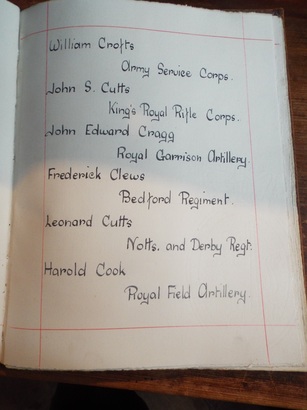 William Crofts
Army Service Corps.
John S. Cutts
King's Royal Rifle Corps.
John Edward Cragg
Royal Garrison Artillery.
Frederick Clews
Bedford Regiment.
Leonard Cutts
Notts. and Derby Regt.
Harold Cook
Royal Field Artillery.